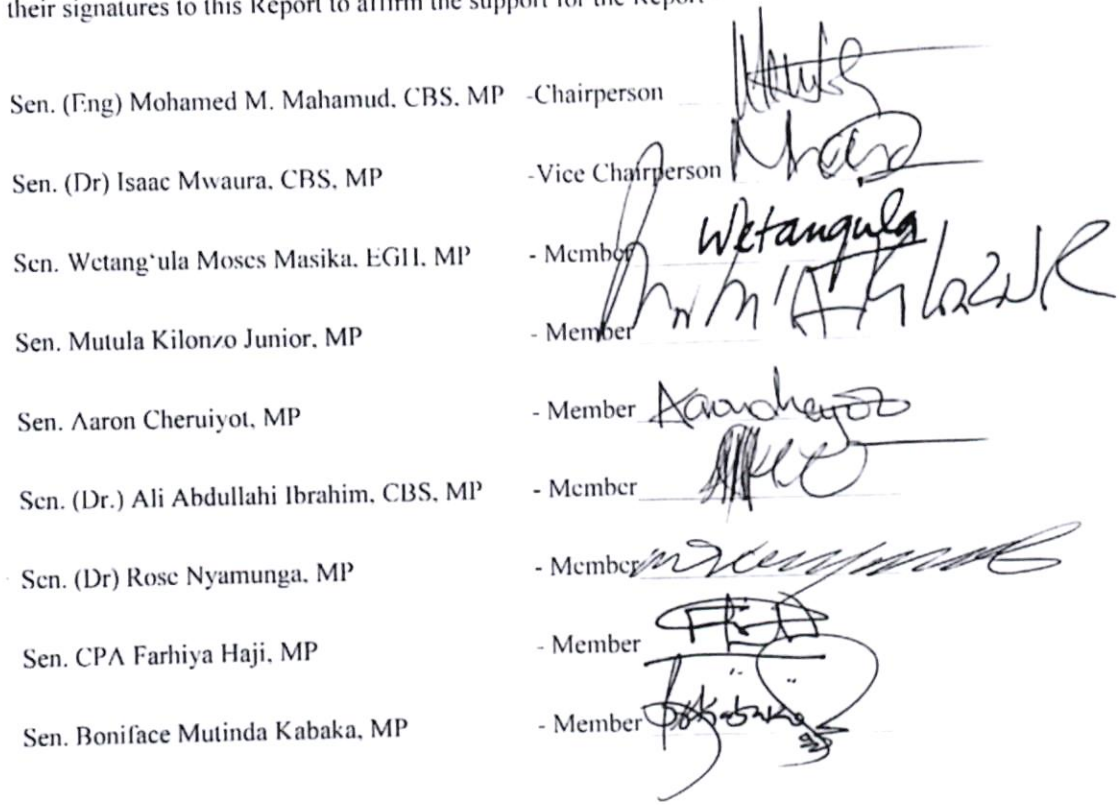 their signatures to this Report to affirm the support for the Report
Sen. (Eng) Mohamed M. Mahamud, CBS, MP -Chairperson
Sen. (Dr) Isaac Mwaura, CBS, MP -Vice Chairperson
Sen. Wetang'ula Moses Masika, EGH, MP - Member Wetangula
Sen. Mutula Kilonzo Junior, MP - Member
Sen. Aaron Cheruiyot, MP - Member
Sen. (Dr.) Ali Abdullahi Ibrahim, CBS, MP - Member
Sen. (Dr) Rose Nyamunga, MP - Member
Sen. CPA Farhiya Haji, MP - Member
Sen. Boniface Mutinda Kabaka, MP - Member